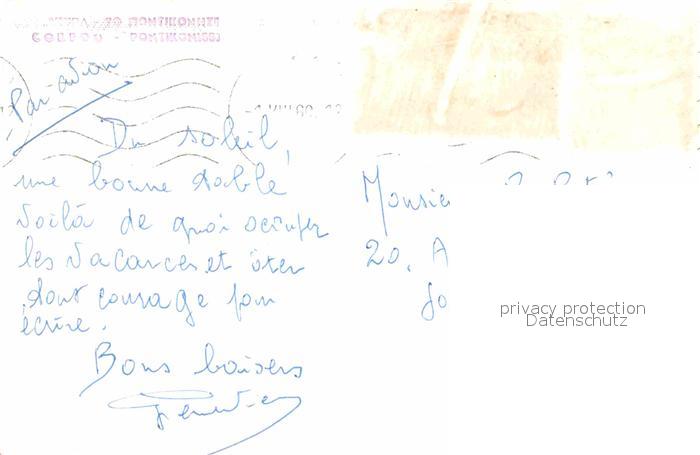 CORFOU - PONTIKONISSI
Par avion
Du soleil,
une bonne table
voilà de quoi occuper
les vacances et ôter
tout courage pour
écrire.
Bons baisers
Monsie
20, A
privacy protection
Datenschutz